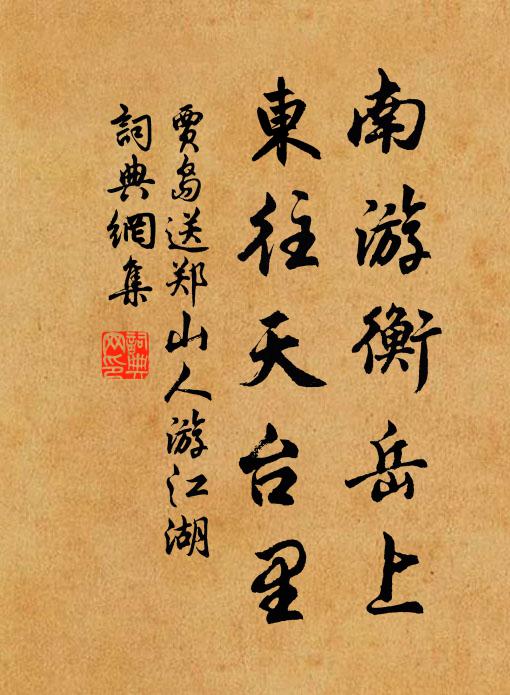 南游衡岳上
東往天台里
贾岛送郑山人游江湖
詞典網集
詞典
网印